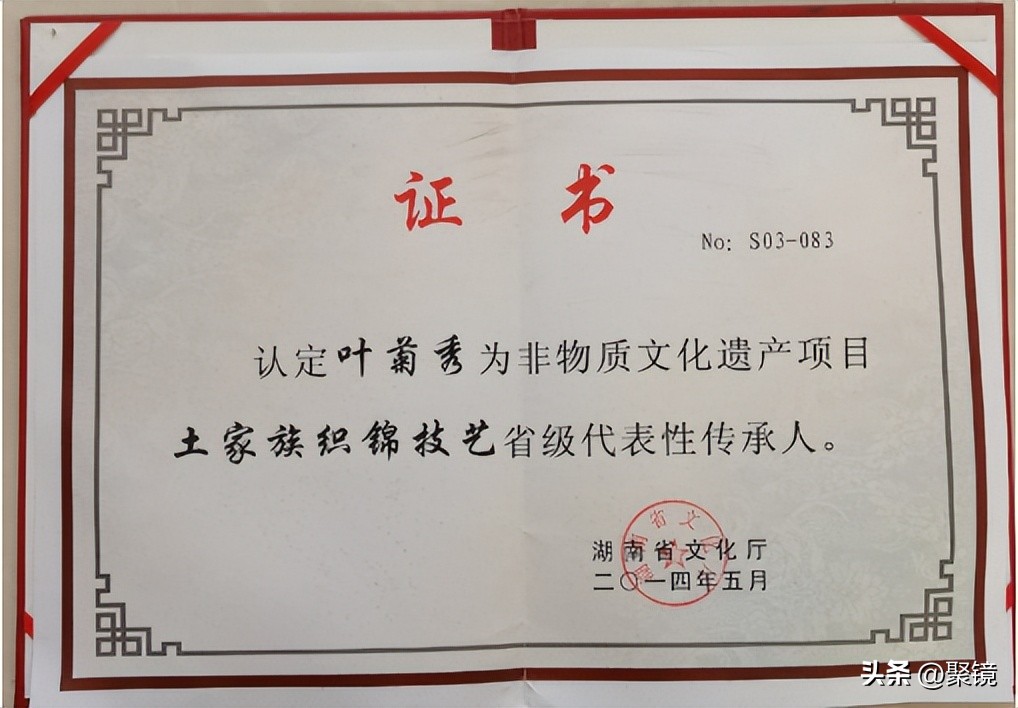 证书
No: S03-083
认定叶菊秀为非物质文化遗产项目
土家族织锦技艺省级代表性传承人。
湖南省文化厅
二〇一四年五月
头条 @聚镜